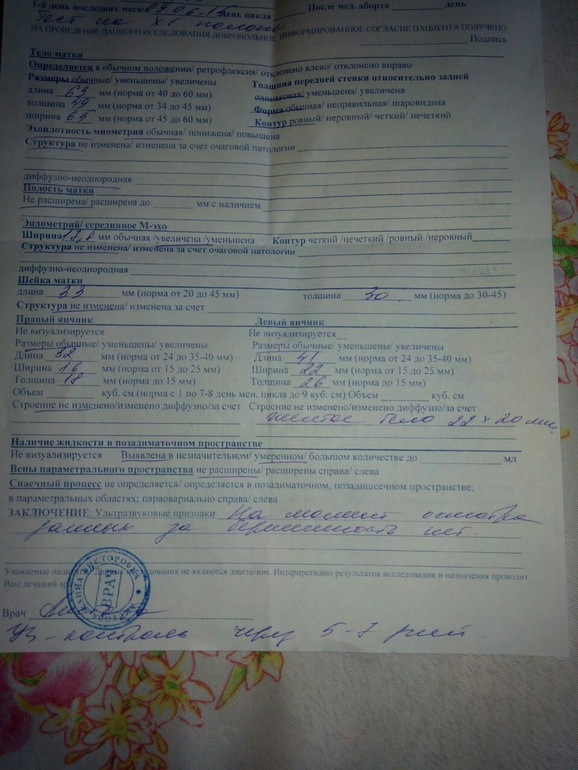 1-й день последних месяч 27.06.19 День цикла После мед. аборта день
тест на ХГ
НА ПРОВЕДЕНИЕ ДАННОГО ИССЛЕДОВАНИЯ ДОБРОВОЛЬНОЕ ИНФОРМИРОВАННОЕ СОГЛАСИЕ ПАЦИЕНТА ПОЛУЧЕНО
Подпись
Тело матки
Определяется в обычном положении/ ретрофлексия/ отклонено влево/ отклонено вправо
Размеры обычные/ уменьшены/ увеличены
длина 63 мм (норма от 40 до 60 мм)
толщина 49 мм (норма от 34 до 45 мм)
ширина 65 мм (норма от 45 до 60 мм)
Толщина передней стенки относительно задней
одинаковая/ уменьшена/ увеличена
Форма обычная/ неправильная/ шаровидная
Контур ровный/ неровный/ четкий/ нечеткий
Эхоплотность миометрия обычная/ понижена/ повышена
Структура не изменена/ изменена за счет очаговой патологии
диффузно-неоднородная
Полость матки
Не расширена/ расширена до мм с наличием
Эндометрий/ серединное М-эхо
Ширина мм обычная /увеличена /уменьшена Контур четкий /нечеткий /ровный /неровный
Структура не изменена/ изменена за счет очаговой патологии
диффузно-неоднородная
Шейка матки
длина 33 мм (норма от 20 до 45 мм) толщина 30 мм (норма 30-45)
Структура не изменена/ изменена за счет
Правый яичник
Не визуализируется
Размеры обычные/ уменьшены/ увеличены
Длина 32 мм (норма от 24 до 35-40 мм)
Ширина 16 мм (норма от 15 до 25 мм)
Толщина 18 мм (норма до 15 мм)
Объем куб. см (норма с 1 по 7-8 день мен. цикла до 9 куб. см)
Строение не изменено/изменено диффузно/за счет
Левый яичник
Не визуализируется
Размеры обычные/ уменьшены/ увеличены
Длина 41 мм (норма от 24 до 35-40 мм)
Ширина 22 мм (норма от 15 до 25 мм)
Толщина 26 мм (норма до 15 мм)
Объем куб. см
Строение не изменено/изменено диффузно/за счет
желтое тело 22 × 20 мм,
Наличие жидкости в позадиматочном пространстве
Не визуализируется Выявлена в незначительном/ умеренном/ большом количестве до мл
Вены параметрального пространства не расширены/ расширены справа/ слева
Спаечный процесс не определяется/ определяется в позадиматочном, позадишеечном пространстве;
в параметральных областях; параовариально справа/ слева
ЗАКЛЮЧЕНИЕ: Ультразвуковые признаки На момент осмотра
данных за беременность нет.
Уважаемые исследования не являются диагнозом. Интерпретацию результатов исследования и назначения проводит
Ваш лечащий
ВИКТОРОВНА
ВРАЧ
Врач
УЗ-контроль через 5-7 дней.